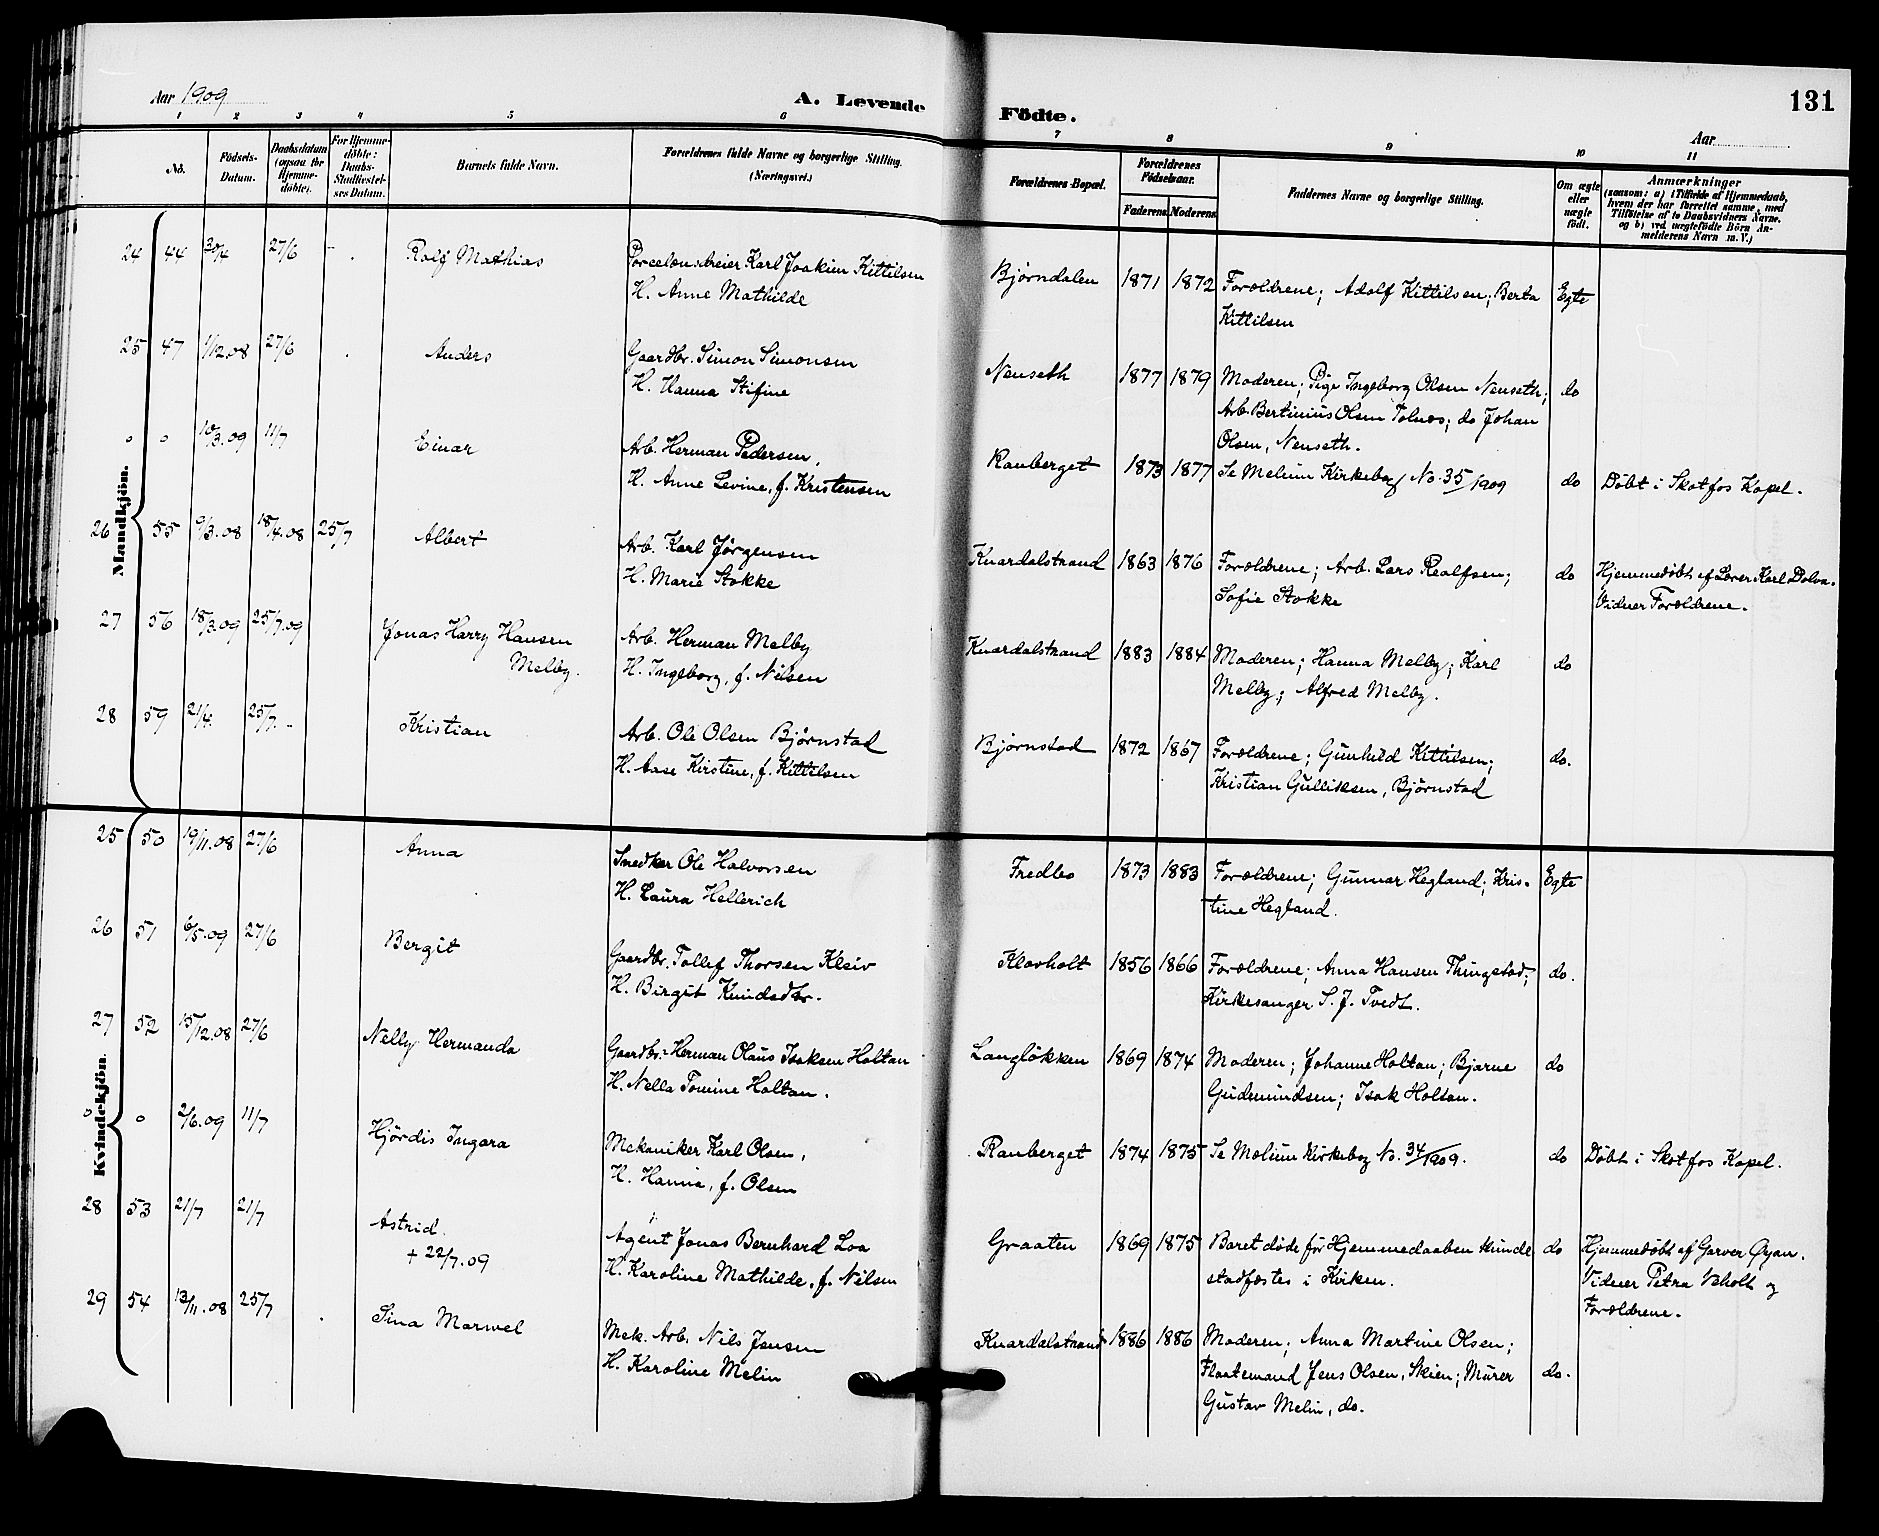 Aar 1909
A. Levende
Födte.
131
Aar
1 2 3 4 5 6 7 8 9 10 11
No.
Födsels-
Datum.
Daabsdatum
(ogsaa for
Hjemme-
döbte).
For Hjemme-
döbte:
Daabs-
Stadfæstel-
ses Datum.
Barnets fulde Navn.
Forældrenes fulde Navne og borgerlige Stilling.
(Næringsvei.)
Forældrenes Bopæl.
Forældrenes
Födselsaar.
Faderens Moderens
Faddernes Navne og borgerlige Stilling.
Om ægte
eller
uægte
födt.
Anmærkninger
(saasom: a) i Tilfælde af Hjemmedaab,
hvem der har forrettet samme, med
Tilföielse af to Daabsvidners Navne.
og b) ved uægtefödte Börn An-
melderens Navn m. V.)
Mandkjön.
24 44 30/4 27/6 - Rolf Mathias Porcelænsdreier Karl Joakim Kittilsen Bjørndalen 1871 1872 Forældrene; Adolf Kittilsen; Berta Egte
H. Anne Mathilde Kittilsen
25 47 1/12.08 27/6 Anders Gaardbr. Simon Simonsen Nenseth 1877 1879 Moderen; Pige Ingeborg Olsen Nenseth; do
H. Hanna Stifine Arb. Bertinius Olsen Tolnæs; do Johan
Olsen, Nenseth.
o o 10/3.09 11/7 Einar Arb. Herman Pedersen, Rauberget 1873 1877 Se Melum Kirkebog No. 35/1909 do Døbt i Skotfos Kapel.
H. Anne Levine, f. Kristensen
26 55 9/3.08 18/4.08 25/7 Albert Arb. Karl Jørgensen Knardalstrand 1863 1876 Forældrene; Arb. Lars Realfsen; do Hjemmedøbt af Lærer Karl Dolva.
H. Marie Stokke Sofie Stokke Vidner Forældrene.
27 56 18/3.09 25/7.09 Jonas Harry Hansen Arb. Herman Melby Knardalstrand 1883 1884 Moderen; Hanna Melby; Karl do
Melby. H. Ingeborg, f. Nilsen Melby; Alfred Melby.
28 59 21/4. 25/7.- Kristian Arb. Ole Olsen Bjørnstad Bjørnstad 1872 1867 Forældrene; Gunhild Kittilsen; do.
H. Aase Kirstine, f. Kittilsen Kristian Gulliksen, Bjørnstad
Kvindekjön.
25 50 19/11.08 27/6 Anna Snedker Ole Halvorsen Fredbo 1873 1883 Forældrene; Gunnar Hegland; Kris- Egte
H. Laura Hellerich tine Hegland.
26 51 6/5.09 27/6 Bergit Gaardbr. Tollef Thorsen Kleiv Klovholt 1856 1866 Forældrene; Anna Hansen Thingstad; do.
H. Birgit Knudsdtr. Kirkesanger S. J. Tvedt.
27 52 15/12.08 27/6 Nelly Hermanda Gaardbr. Herman Olaus Isaksen Holtan Langløkken 1869 1874 Moderen; Johanne Holtan; Bjarne do
H. Nella Tomine Holtan. Gudemundsen; Isak Holtan.
o o 2/6.09 11/7 Hjørdis Ingara Mekaniker Karl Olsen, Rauberget 1874 1875 Se Melum Kirkebog No. 34/1909. do Døbt i Skotfos Kapel.
H. Hanna, f. Olsen
28 53 21/7 21/7 Astrid Agent Jonas Bernhard Loa Graaten 1869 1875 Baret døde før Hjemmedaaben kunde do Hjemmedøbt af Garver Øyan.
+ 22/7.09 H. Karoline Mathilde, f. Nilsen stadfæstes i Kirken. Vidner Petra Vaholt og
Forældrene.
29 54 13/11.08 25/7 Sina Marwel Mek. Arb. Nils Jensen Knardalstrand 1886 1886 Moderen; Anna Martine Olsen;
H. Karoline Melin Flaatemand Jens Olsen, Skien; Murer do.
Gustav Melin, do.